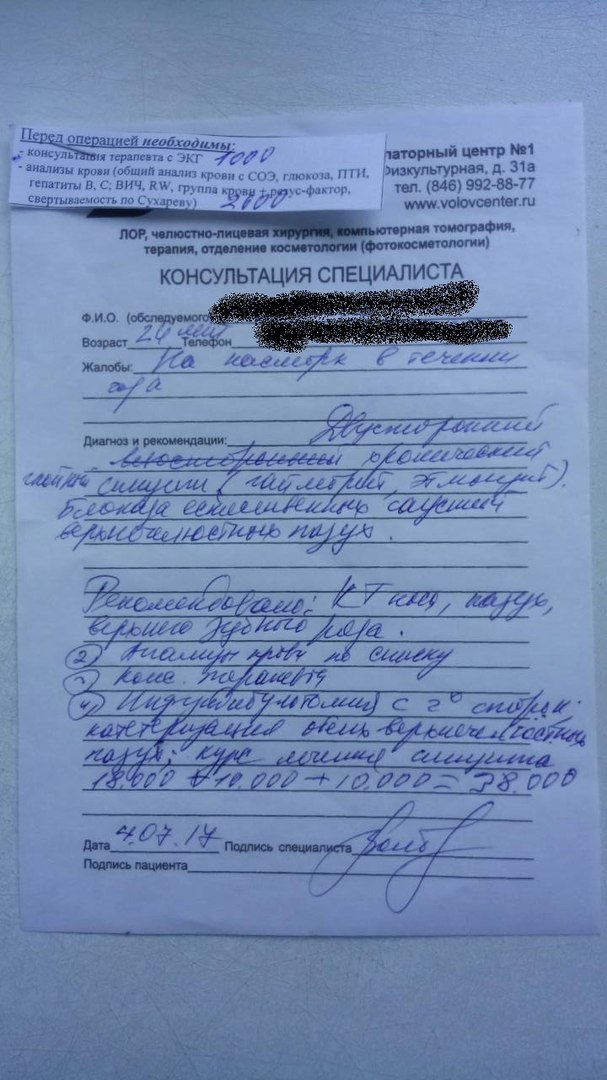 Перед операцией необходимы:
- консультация терапевта с ЭКГ 1000
- анализы крови (общий анализ крови с СОЭ, глюкоза, ПТИ,
гепатиты В, С; ВИЧ, RW, группа крови + резус-фактор,
свертываемость по Сухареву) 2600
латорный центр №1
Физкультурная, д. 31а
тел. (846) 992-88-77
www.volovcenter.ru
ЛОР, челюстно-лицевая хирургия, компьютерная томография,
терапия, отделение косметологии (фотокосметологии)
КОНСУЛЬТАЦИЯ СПЕЦИАЛИСТА
Ф.И.О. (обследуемого
Возраст лет Телефон
Жалобы: На насморк в течении
года
Диагноз и рекомендации: Двусторонний
хронический
гнойный синусит (гайморит, этмоидит).
Блокада естественных соустий
верхнечелюстных пазух.
Рекомендовано: КТ носа, пазух,
верхнего зубного ряда.
2) Анализы крови по списку
3) Конс. терапевта
4) Инфундибулотомия с 2х сторон.
катетеризация верхнечелюстных
пазух; курс лечения синусита
18.000 + 10.000 + 10.000 = 38.000
Дата 4.07.17 Подпись специалиста
Подпись пациента